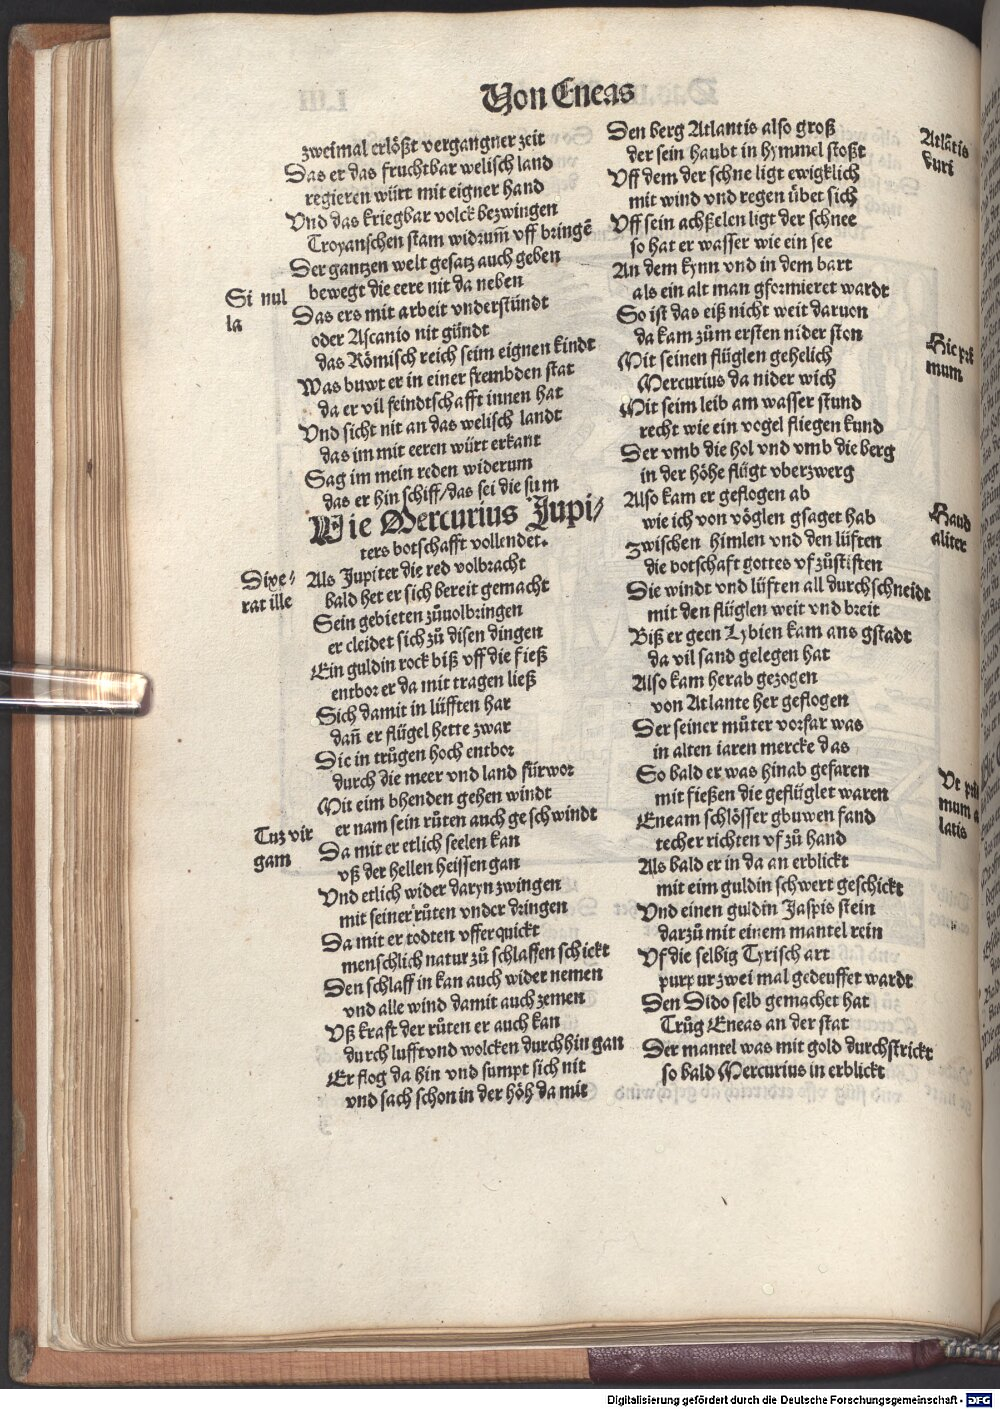 Von Eneas
zweimal erlößt vergangner zeit
Das er das fruchtbar welisch land
regieren würt mit eigner hand
Vnd das kriegbar volck bezwingen
Troyanschen stam widrum̃ vff bringẽ
Der gantzen welt gesatz auch geben
Si nul
la
bewegt die eere nit da neben
Das ers mit arbeit vnderstündt
oder Ascanio nit gündt
das Römisch reich seim eignen kindt
Was buwt er in einer frembden stat
da er vil feindtschafft innen hat
Vnd sicht nit an das welisch landt
das im mit eeren würt erkant
Sag im mein reden widerum
das er hin schiff/das sei die sum
Wie Mercurius Jupi/
ters botschafft vollendet.
Dixe/
rat ille
Als Jupiter die red volbracht
bald het er sich bereit gemacht
Sein gebieten zůuolbringen
er cleidet sich zů disen dingen
Ein guldin rock biß vff die fieß
entbor er da mit tragen ließ
Sich damit in lüfften har
dañ er flügel hette zwar
Die in trůgen hoch entbor
durch die meer vnd land fürwor
Mit eim bhenden gehen windt
er nam sein růten auch geschwindt
Tuz vir
gam
Da mit er etlich seelen kan
vß der hellen heissen gan
Vnd etlich wider daryn zwingen
mit seiner růten vnder dringen
Da mit er todten vfferquickt
menschlich natur zů schlaffen schickt
Den schlaff in kan auch wider nemen
vnd alle wind damit auch zemen
Vß kraft der růten er auch kan
durch lufft vnd wolcken durchhin gan
Er flog da hin vnd sumpt sich nit
vnd sach schon in der höh da mit
Den berg Atlantis also groß
der sein haubt in hymmel stoßt
Vff dem der schne ligt ewigklich
mit wind vnd regen übet sich
Vff sein achßelen ligt der schnee
so hat er wasser wie ein see
An dem kynn vnd in dem bart
als ein alt man gformieret wardt
So ist das eiß nicht weit daruon
da kam zům ersten nider ston
Mit seinen flüglen gehelich
Mercurius da nider wich
Mit seim leib am wasser stund
recht wie ein vogel fliegen kund
Der vmb die hol vnd vmb die berg
in der höhe flügt vberzwerg
Also kam er geflogen ab
wie ich von vöglen gsaget hab
Zwischen himlen vnd den lüften
die botschaft gottes vf zůstiften
Die windt vnd lüften all durchschneidt
mit den flüglen weit vnd breit
Biß er geen Lybien kam ans gstadt
da vil sand gelegen hat
Also kam herab gezogen
von Atlante her geflogen
Der seiner můter vorfar was
in alten iaren mercke das
So bald er was hinab gefaren
mit fießen die geflüglet waren
Eneam schlösser gbuwen fand
techer richten vf zů hand
Als bald er in da an erblickt
mit eim guldin schwert geschickt
Vnd einen guldin Jaspis stein
darzů mit einem mantel rein
Vf die selbig Tyrisch art
purpur zwei mal gedeuffet wardt
Den Dido selb gemachet hat
Trůg Eneas an der stat
Der mantel was mit gold durchstrickt
so bald Mercurius in erblickt
Atlãtis
duri
Hic pri
mum
Haud
aliter
Vt
mum a
latis
Digitalisierung gefördert durch die Deutsche Forschungsgemeinschaft - DFG